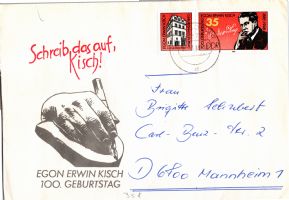 Schreib das auf,
Kisch!
EGON ERWIN KISCH
35
DDR
Frau
Brigitte
Carl-Benz-Str. 2
D 6800 Mannheim 1
EGON ERWIN KISCH
100. GEBURTSTAG